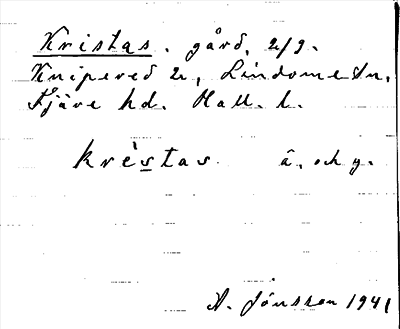 Kristas. gård, 2/9.
Knipered 2, Lindome sn,
Fjäre hd. Hall. l.
krèstas â. och y.
A. Jónsson 1941